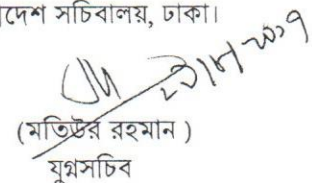 দেশ সচিবালয়, ঢাকা।
(মতিউর রহমান )
যুগ্মসচিব